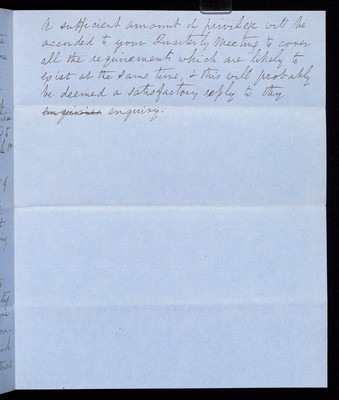 A sufficient amount of privilege will be
accorded to your Quarterly Meeting to cover
all the requirements which are likely to
exist at the same time, & this will probably
be deemed a satisfactory reply to thy
enquiries enquiry.